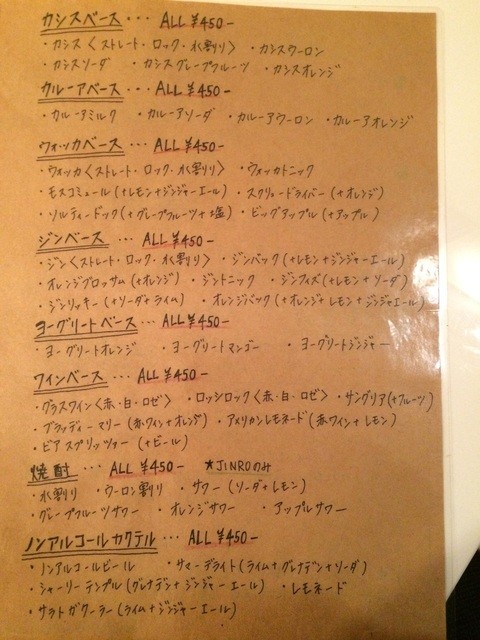 カシスベース・・・ ALL ¥450-
・カシス〈ストレート・ロック・水割り〉 ・カシスウーロン
・カシスソーダ ・カシスグレープフルーツ ・カシスオレンジ
カルーアベース・・・ ALL ¥450-
・カルーアミルク ・カルーアソーダ ・カルーアウーロン ・カルーアオレンジ
ウォッカベース・・・ ALL ¥450-
・ウォッカ〈ストレート・ロック・水割り〉 ・ウォッカトニック
・モスコミュール(+レモン+ジンジャーエール) ・スクリュードライバー(+オレンジ)
・ソルティードック(+グレープフルーツ+塩) ・ビッグアップル(+アップル)
ジンベース ・・・ ALL ¥450-
・ジン〈ストレート・ロック・水割り〉 ・ジンバック(+レモン+ジンジャーエール)
・オレンジブロッサム(+オレンジ) ・ジントニック ・ジンフィズ(+レモン+ソーダ)
・ジンリッキー(+ソーダ+ライム) ・オレンジバック(+オレンジ+レモン+ジンジャエール)
ヨーグリートベース・・・ ALL ¥450-
・ヨーグリートオレンジ ・ヨーグリートマンゴー ・ヨーグリートジンジャー
ワインベース ・・・ ALL ¥450-
・グラスワイン〈赤・白・ロゼ〉 ・ロッシロック〈赤・白・ロゼ〉 ・サングリア(+フルーツ)
・ブラッディーマリー(赤ワイン+オレンジ) ・アメリカンレモネード(赤ワイン+レモン)
・ビアスプリッツァー (+ビール)
焼酎 ・・・ ALL ¥450- ★JINROのみ
・水割り ・ウーロン割り ・サワー(ソーダ+レモン)
・グレープフルーツサワー ・オレンジサワー ・アップルサワー
ノンアルコールカクテル ・・・ ALL ¥450-
・ノンアルコールビール ・サマーデライト(ライム+グレナデン+ソーダ)
・シャーリーテンプル(グレナデン+ジンジャーエール) ・レモネード
・サラトガクーラー(ライム+ジンジャーエール)